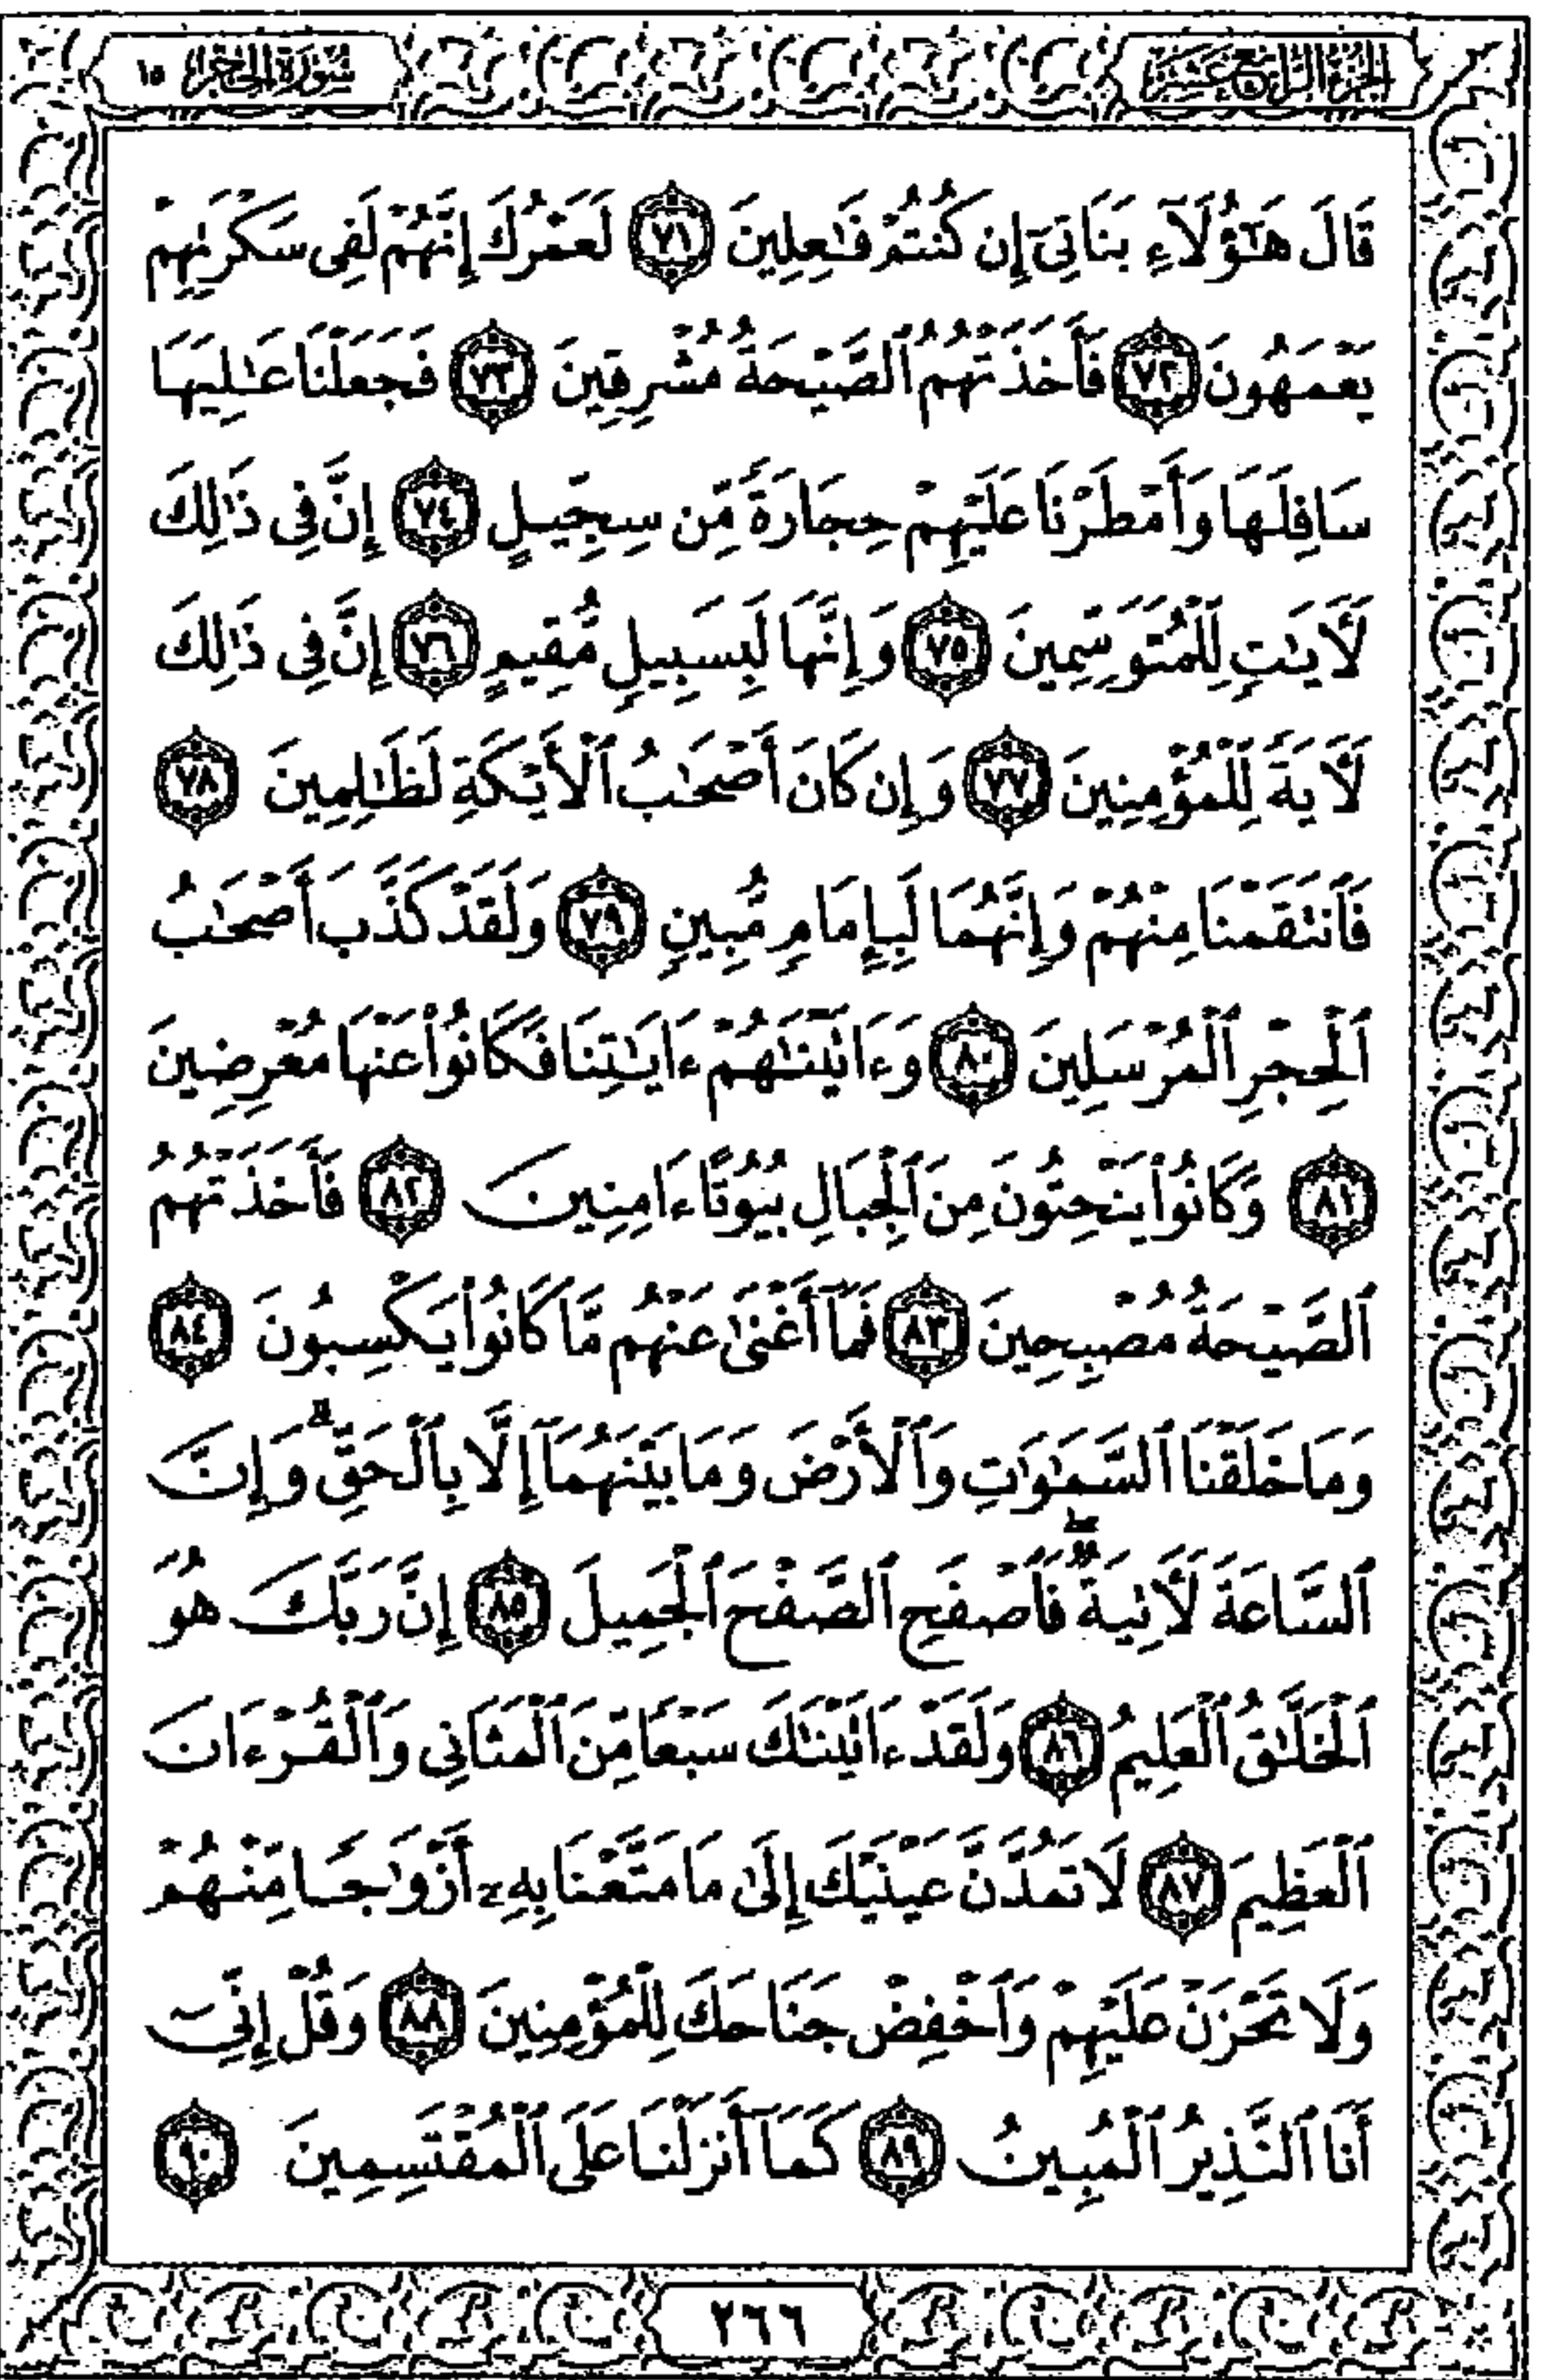 الجزء الرابع عشر
سورة الحجر ١٥
قَالَ هَٰٓؤُلَآءِ بَنَاتِىٓ إِن كُنتُمْ فَٰعِلِينَ ٧١ لَعَمْرُكَ إِنَّهُمْ لَفِى سَكْرَتِهِمْ
يَعْمَهُونَ ٧٢ فَأَخَذَتْهُمُ ٱلصَّيْحَةُ مُشْرِقِينَ ٧٣ فَجَعَلْنَا عَٰلِيَهَا
سَافِلَهَا وَأَمْطَرْنَا عَلَيْهِمْ حِجَارَةً مِّن سِجِّيلٍ ٧٤ إِنَّ فِى ذَٰلِكَ
لَأَيَٰتٍ لِّلْمُتَوَسِّمِينَ ٧٥ وَإِنَّهَا لَبِسَبِيلٍ مُّقِيمٍ ٧٦ إِنَّ فِى ذَٰلِكَ
لَأَيَةً لِّلْمُؤْمِنِينَ ٧٧ وَإِن كَانَ أَصْحَٰبُ ٱلْأَيْكَةِ لَظَٰلِمِينَ ٧٨
فَٱنتَقَمْنَا مِنْهُمْ وَإِنَّهُمَا لَبِإِمَامٍ مُّبِينٍ ٧٩ وَلَقَدْ كَذَّبَ أَصْحَٰبُ
ٱلْحِجْرِ ٱلْمُرْسَلِينَ ٨٠ وَءَاتَيْنَٰهُمْ ءَايَٰتِنَا فَكَانُوا۟ عَنْهَا مُعْرِضِينَ
٨١ وَكَانُوا۟ يَنْحِتُونَ مِنَ ٱلْجِبَالِ بُيُوتًا ءَامِنِينَ ٨٢ فَأَخَذَتْهُمُ
ٱلصَّيْحَةُ مُصْبِحِينَ ٨٣ فَمَآ أَغْنَىٰ عَنْهُم مَّا كَانُوا۟ يَكْسِبُونَ ٨٤
وَمَا خَلَقْنَا ٱلسَّمَٰوَٰتِ وَٱلْأَرْضَ وَمَا بَيْنَهُمَآ إِلَّا بِٱلْحَقِّ ۗ وَإِنَّ
ٱلسَّاعَةَ لَأَتِيَةٌ ۖ فَٱصْفَحِ ٱلصَّفْحَ ٱلْجَمِيلَ ٨٥ إِنَّ رَبَّكَ هُوَ
ٱلْخَلَّٰقُ ٱلْعَلِيمُ ٨٦ وَلَقَدْ ءَاتَيْنَٰكَ سَبْعًا مِّنَ ٱلْمَثَانِى وَٱلْقُرْءَانَ
ٱلْعَظِيمَ ٨٧ لَا تَمُدَّنَّ عَيْنَيْكَ إِلَىٰ مَا مَتَّعْنَا بِهِۦٓ أَزْوَٰجًا مِّنْهُمْ
وَلَا تَحْزَنْ عَلَيْهِمْ وَٱخْفِضْ جَنَاحَكَ لِلْمُؤْمِنِينَ ٨٨ وَقُلْ إِنِّىٓ
أَنَا ٱلنَّذِيرُ ٱلْمُبِينُ ٨٩ كَمَآ أَنزَلْنَا عَلَى ٱلْمُقْتَسِمِينَ ٩٠
٢٦٦